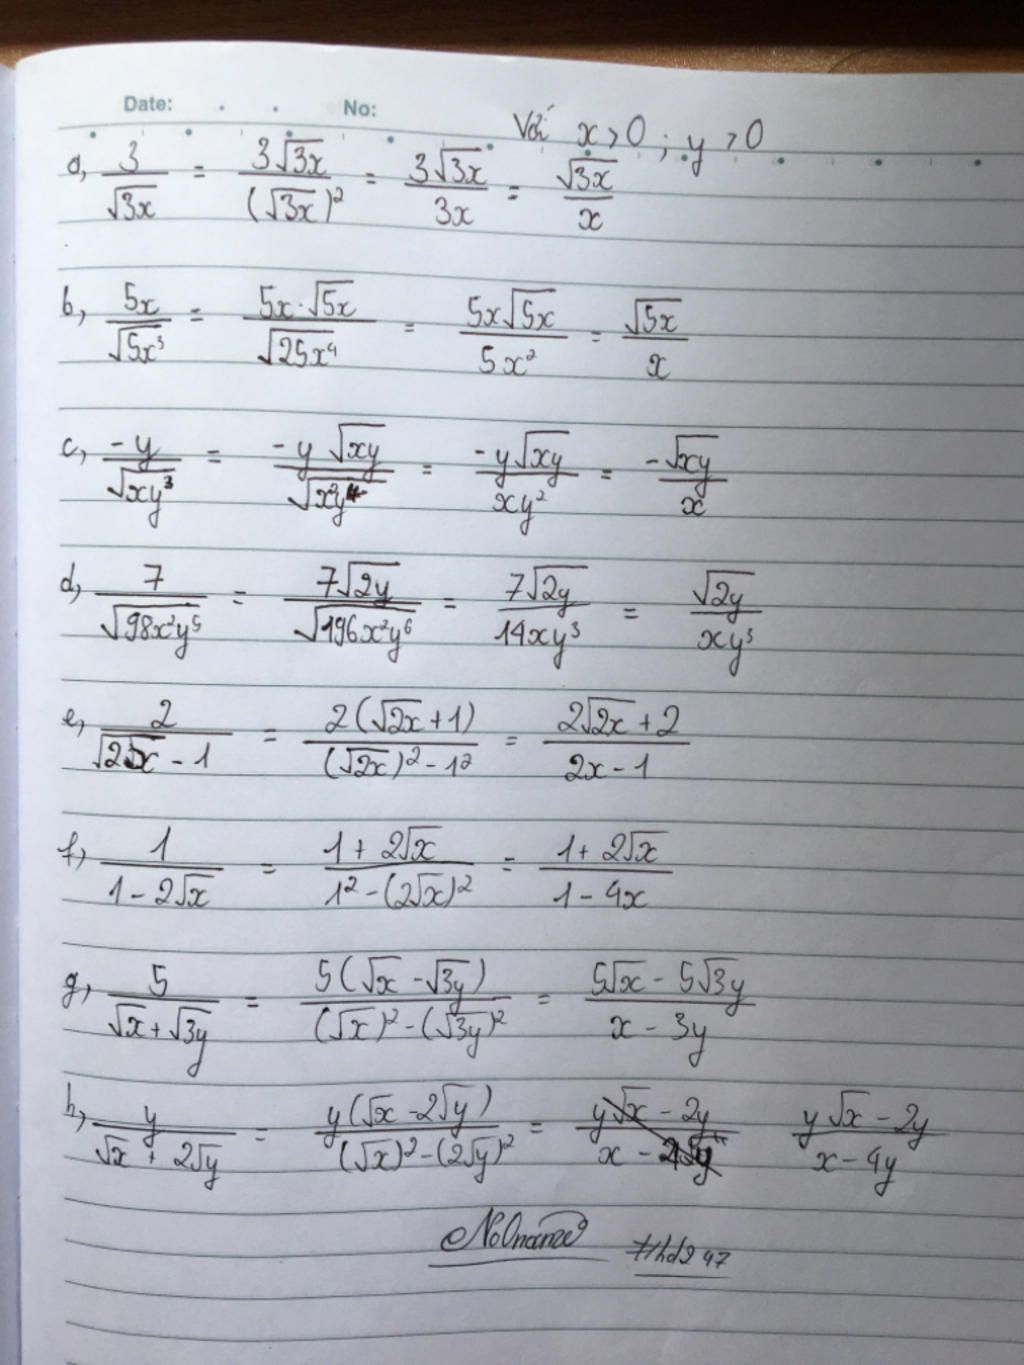 Date: No:
Với x > 0 ; y > 0
a, 3/√3x = 3√3x/(√3x)² = 3√3x/3x = √3x/x
b, 5x/√5x³ = 5x·√5x/√25x⁴ = 5x√5x/5x² = √5x/x
c, -y/√xy³ = -y√xy/√x²y⁴ = -y√xy/xy² = -√xy/x
d, 7/√98x²y⁵ = 7√2y/√196x²y⁶ = 7√2y/14xy³ = √2y/xy³
e, 2/√2x - 1 = 2(√2x + 1)/(√2x)² - 1² = 2√2x + 2/2x - 1
f, 1/1 - 2√x = 1 + 2√x/1² - (2√x)² = 1 + 2√x/1 - 4x
g, 5/√x + √3y = 5(√x - √3y)/(√x)² - (√3y)² = 5√x - 5√3y/x - 3y
h, y/√x + 2√y = y(√x - 2√y)/(√x)² - (2√y)² = y√x - 2y/x - y√x - 2y/x - 4y